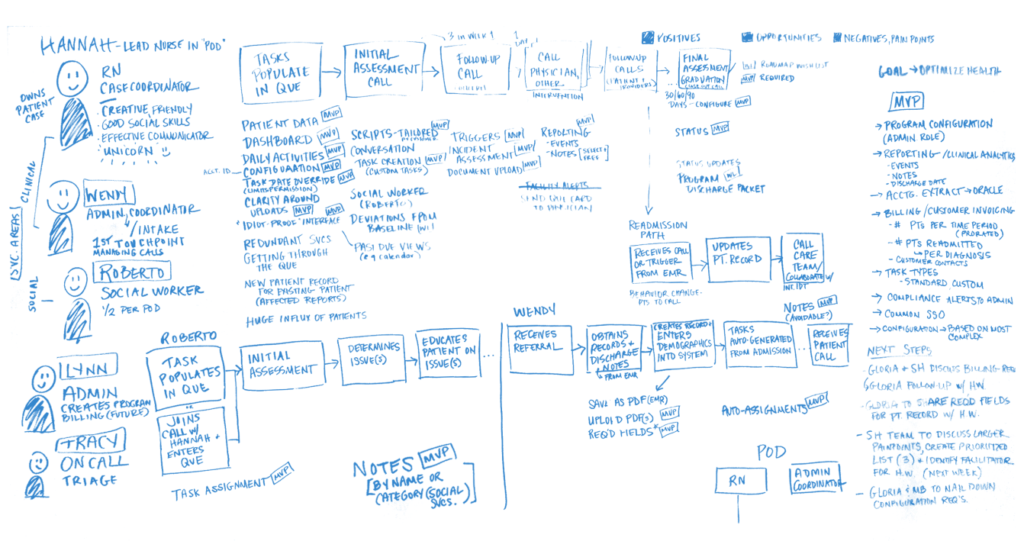 HANNAH - LEAD NURSE IN "POD"
RN
CASE COORDINATOR
OWNS
PATIENT
CASE
- CREATIVE, FRIENDLY
- GOOD SOCIAL SKILLS
- EFFECTIVE COMMUNICATOR
"UNICORN"
SVC. AREAS
CLINICAL
SOCIAL
WENDY
ADMIN COORDINATOR
/ INTAKE
1ST TOUCHPOINT
MANAGING CALLS
ROBERTO
SOCIAL WORKER
1/2 PER POD
LYNN
ADMIN
CREATES PROGRAM
BILLING (FUTURE)
TRACY
ON CALL
TRIAGE
POSITIVES
OPPORTUNITIES
NEGATIVES, PAIN POINTS
TASKS
POPULATE
IN QUE
INITIAL
ASSESSMENT
CALL
3 IN WEEK 1
FOLLOW-UP
CALL
CALL
PHYSICIAN,
OTHER
INTERVENTION
FOLLOWUP
CALLS
(PATIENT &
PROVIDERS)
FINAL
ASSESSMENT
GRADUATION
30/60/90
DAYS - CONFIGURE MVP
REQUIRED
PATIENT DATA MVP
DASHBOARD MVP
DAILY ACTIVITIES MVP
CONFIGURATION MVP
TASK DATE OVERRIDE MVP
CLARITY AROUND
UPLOADS MVP
"IDIOT-PROOF" INTERFACE
REDUNDANT SVCS
GETTING THROUGH
THE QUE
NEW PATIENT RECORD
FOR EXISTING PATIENT
(AFFECTED REPORTS)
HUGE INFLUX OF PATIENTS
SCRIPTS - TAILORED MVP
CONVERSATION
TASK CREATION MVP
(CUSTOM TASKS)
SOCIAL WORKER
(ROBERTO)
DEVIATIONS FROM
BASELINE
PAST DUE VIEWS
(e.g. calendar)
TRIGGERS MVP
INCIDENT
ASSESSMENT MVP
DOCUMENT UPLOAD MVP
REPORTING MVP
- EVENTS
- NOTES
FACILITY ALERTS
TO PHYSICIAN
STATUS MVP
STATUS UPDATES
PROGRAM
DISCHARGE PACKET
READMISSION
PATH
RECEIVES CALL
OR TRIGGER
FROM EMR
UPDATES
PT. RECORD
CALL
CARE
TEAM /
COLLABORATE W/
INT. IDT
BEHAVIOR CHANGE -
PTS TO CALL
NOTES MVP
(AVOIDABLE?)
ROBERTO
TASK
POPULATES
IN QUE
JOINS
CALL W/
HANNAH +
ENTERS
QUE
INITIAL
ASSESSMENT
DETERMINES
ISSUE(S)
EDUCATES
PATIENT ON
ISSUE(S)
...
TASK ASSIGNMENT MVP
NOTES MVP
[BY NAME OR
CATEGORY (SOCIAL
SVCS.]
WENDY
RECEIVES
REFERRAL
OBTAINS
RECORDS +
DISCHARGE
NOTES
FROM EMR
CREATES RECORD +
ENTERS
DEMOGRAPHICS
INTO SYSTEM
TASKS
AUTO-GENERATED
FROM ADMISSION
...
RECEIVES
PATIENT
CALL
SAVE AS PDF (EMR)
UPLOAD PDF(S) MVP
REQ'D FIELDS* MVP
AUTO-ASSIGNMENTS MVP
POD
RN
ADMIN
COORDINATOR
GOAL → OPTIMIZE HEALTH
MVP
→ PROGRAM CONFIGURATION
(ADMIN ROLE)
→ REPORTING / CLINICAL ANALYTICS
- EVENTS
- NOTES
- DISCHARGE DATE
→ ACCTG. EXTRACT → ORACLE
→ BILLING / CUSTOMER INVOICING
- # PTS PER TIME PERIOD
(PRORATED)
- # PTS READMITTED
↳ PER DIAGNOSIS
- CUSTOMER CONTACTS
→ TASK TYPES
- STANDARD CUSTOM
→ COMPLIANCE ALERTS TO ADMIN
→ COMMON SSO
→ CONFIGURATION → BASED ON MOST
COMPLEX
NEXT STEPS
- GLORIA + SH DISCUSS BILLING REQ
- GLORIA FOLLOW UP W/ HW
- GLORIA TO SHARE REQ'D FIELDS
FOR PT. RECORD W/ H.W.
- SH TEAM TO DISCUSS LARGER
PAINPOINTS, CREATE PRIORITIZED
LIST (3) + IDENTIFY FACILITATOR
FOR H.W. (NEXT WEEK)
- GLORIA & MB TO NAIL DOWN
CONFIGURATION REQ'S.